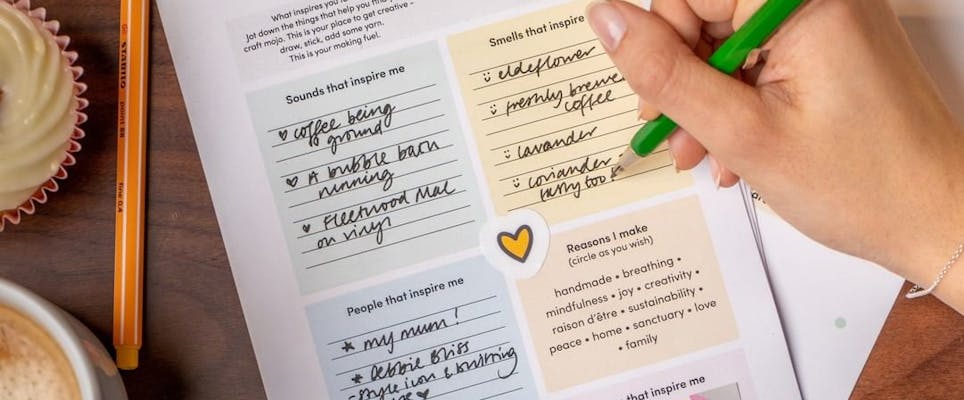 What inspires you
Jot down the things that help you
craft mojo. This is your place to get creative -
draw, stick, add some yarn.
This is your making fuel.
Sounds that inspire me
coffee being
ground
A bubble bath
running
Fleetwood Mac
on vinyl
Smells that inspire
elderflower
freshly brewe
coffee
lavander
coriander
too
People that inspire me
my mum!
Debbie Bliss
style icon & knitting
Reasons I make
(circle as you wish)
handmade • breathing •
mindfulness • joy • creativity •
raison d'être • sustainability •
peace • home • sanctuary • love
• family
that inspire me
STABILO point 88 fine 0,4